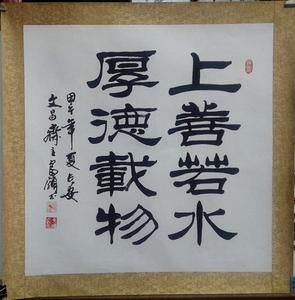 上善若水
厚德載物
甲午年夏長安
文昌齋主